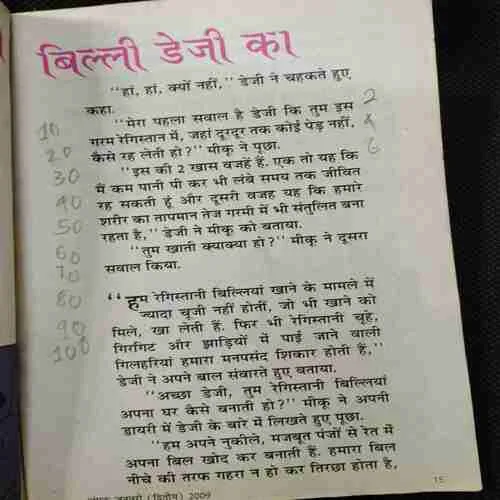 बिल्ली डेजी का
"हां, हां, क्यों नहीं," डेजी ने चहकते हुए
कहा.
"मेरा पहला सवाल है डेजी कि तुम इस
गरम रेगिस्तान में, जहां दूरदूर तक कोई पेड़ नहीं,
कैसे रह लेती हो?" मीकू ने पूछा.
"इस की 2 खास वजहें हैं. एक तो यह कि
मैं कम पानी पी कर भी लंबे समय तक जीवित
रह सकती हूं और दूसरी वजह यह कि हमारे
शरीर का तापमान तेज गरमी में भी संतुलित बना
रहता है," डेजी ने मीकू को बताया.
"तुम खाती क्याक्या हो?" मीकू ने दूसरा
सवाल किया.
"हम रेगिस्तानी बिल्लियां खाने के मामले में
ज्यादा चूजी नहीं होतीं, जो भी खाने को
मिले, खा लेती हैं. फिर भी रेगिस्तानी चूहे,
गिरगिट और झाड़ियों में पाई जाने वाली
गिलहरियां हमारा मनपसंद शिकार होती हैं,"
डेजी ने अपने बाल संवारते हुए बताया.
"अच्छा डेजी, तुम रेगिस्तानी बिल्लियां
अपना घर कैसे बनाती हो?" मीकू ने अपनी
डायरी में डेजी के बारे में लिखते हुए पूछा.
"हम अपने नुकीले, मजबूत पंजों से रेत में
अपना बिल खोद कर बनाती हैं. हमारा बिल
नीचे की तरफ गहरा न हो कर तिरछा होता है,
(द्वितीय) 2009
15
10
20
30
40
50
60
70
80
90
100
2
4
6